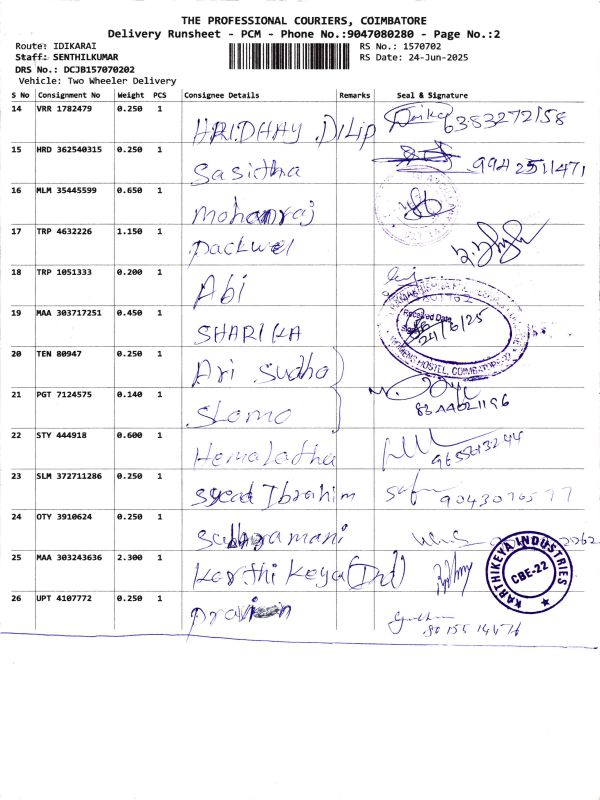 THE PROFESSIONAL COURIERS, COIMBATORE
Delivery Runsheet - PCM - Phone No.:9047080280 - Page No.:2
Route: IDIKARAI RS No.: 1570702
Staff: SENTHILKUMAR RS Date: 24-Jun-2025
DRS No.: DCJB157070202
Vehicle: Two Wheeler Delivery
S No Consignment No Weight PCS Consignee Details Remarks Seal & Signature
14 VRR 1782479 0.250 1 HRIDHAY .Dilip 6383272158
15 HRD 362540315 0.250 1 Sasitha 9942511471
16 MLM 35445599 0.650 1 Mohanraj
17 TRP 4632226 1.150 1 Packwel
18 TRP 1051333 0.200 1 Abi
19 MAA 303717251 0.450 1 SHARIKA Received Date 24/6/25
WOMENS HOSTEL, COIMBATORE
20 TEN 80947 0.250 1 Ari Sudha
21 PGT 7124575 0.140 1 Slomo
22 STY 444918 0.600 1 Hemalatha
23 SLM 372711286 0.250 1 syead Ibrahim
24 OTY 3910624 0.250 1
25 MAA 303243636 2.300 1 Karthikeya (Ind) KARTHIKEYA INDUSTRIES CBE-22
26 UPT 4107772 0.250 1 Pravin